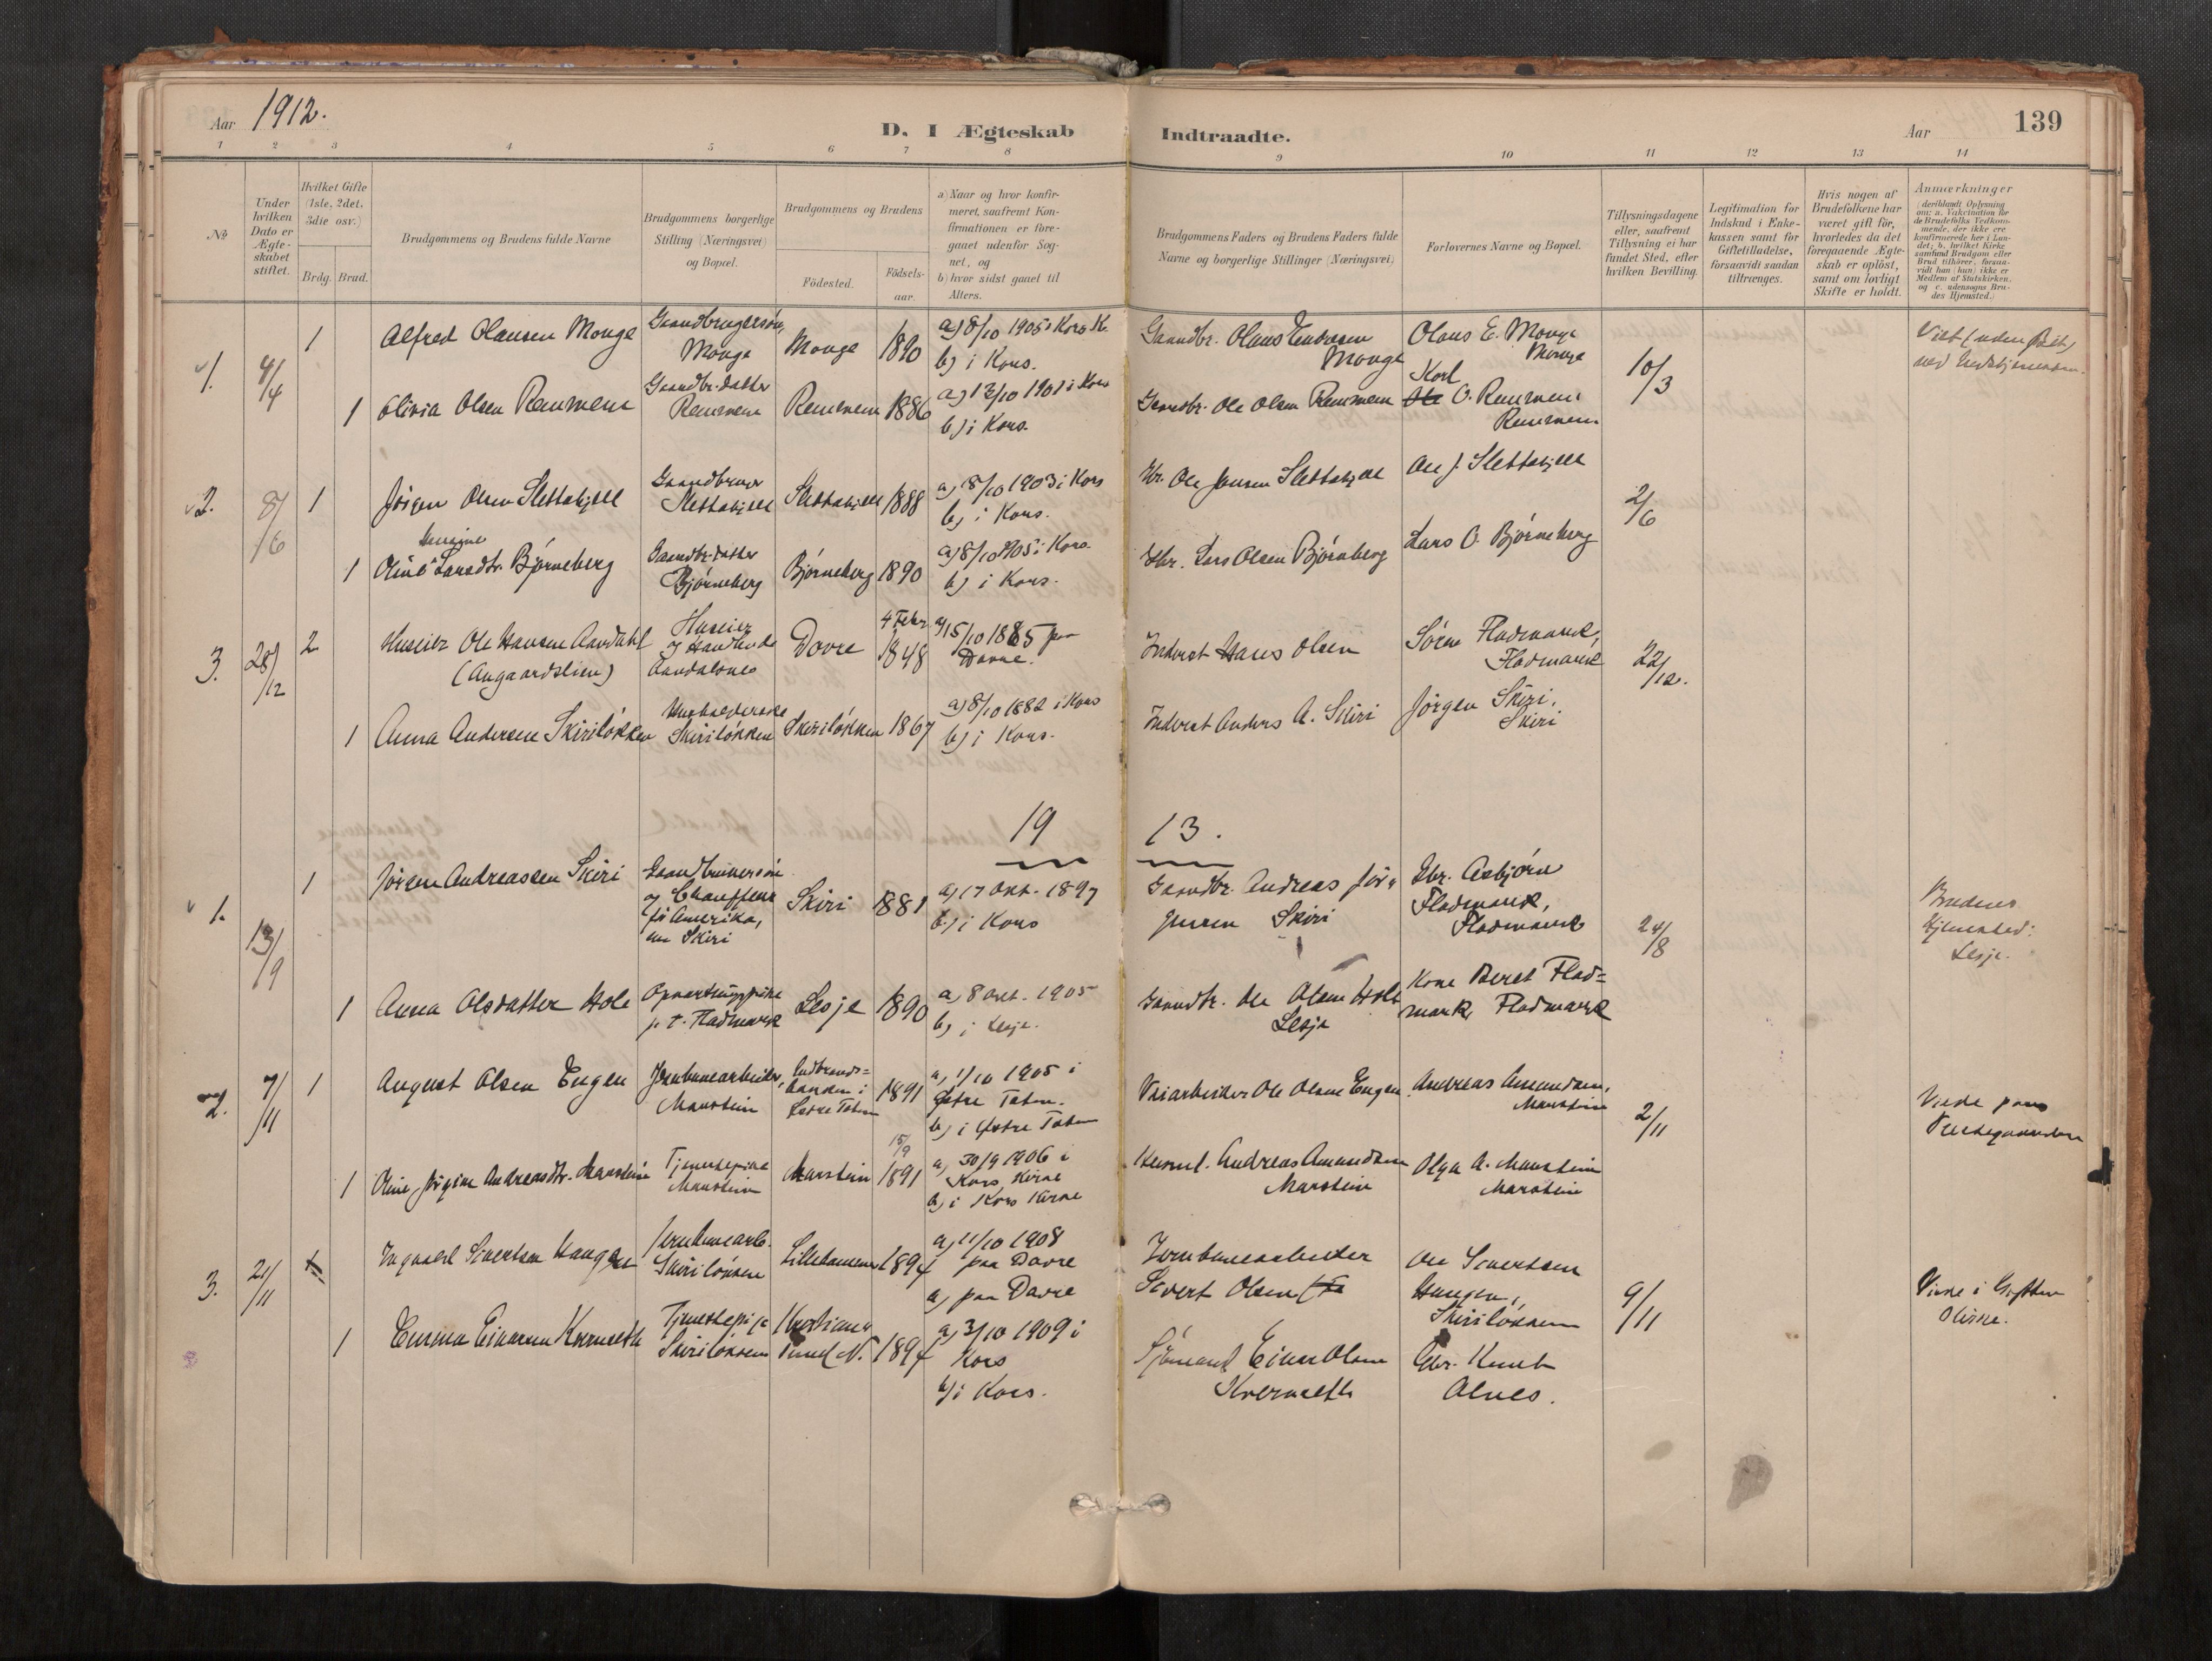 Aar 1912.
D. I Ægteskab Indtraadte.
Aar
139
1 2 3 4 5 6 7 8 9 10 11 12 13 14
No
Under hvilken Dato er Ægteskabet stiftet.
Hvilket Gifte (1ste, 2det, 3die osv.)
Brdg. Brud.
Brudgommens og Brudens fulde Navne
Brudgommens borgerlige Stilling (Næringsvei) og Bopæl.
Brudgommens og Brudens
Födested.
Födsels-aar.
a) Naar og hvor konfirmeret, saafremt Konfirmationen er foregaaet udenfor Sognet, og
b) hvor sidst gaaet til Alters.
Brudgommens Faders og Brudens Faders fulde Navne og borgerlige Stillinger (Næringsvei)
Forlovernes Navne og Bopæl.
Tillysningsdagene eller, saafremt Tillysning ei har fundet Sted, efter hvilken Bevilling.
Legitimation for Indskud i Enkekassen samt for Giftetilladelse, forsaavidt saadan tiltrænges.
Hvis nogen af Brudefolkene har været gift för, hvorledes da det foregaaende Ægteskab er oplöst, samt om lovligt Skifte er holdt.
Anmærkninger (deriblandt Oplysning om: a. Vakcination for de Brudefolks Vedkommende, der ikke ere konfirmerede her i Landet; b. hvilket Kirkesamfund Brudgom eller Brud tilhörer, forsaavidt han (hun) ikke er Medlem af Statskirken, og c. udensogns Brudes Hjemsted.)
1. 9/4 1 Alfred Olausen Monge
Gaardbrugersøn, Monge
Monge 1890
a) 8/10 1905 i Kors K.
b) i Kors.
Gaardbr. Olaus Endresen Monge
Olaus E. Monge Monge
10/3
1 Olivia Olsen Remmem
Gaardbr.datter Remmem
Remmem 1886
a) 13/10 1901 i Kors
b) i Kors.
Gaardbr. Ole Olsen Remmem
Karl O. Remmem Remmem
2. 8/6 1 Jörgen Olsen Slettakjell
Gaardbruger Slettakjell
Slettakjell 1888
a) 18/10 1903 i Kors
b) i Kors.
Gbr. Ole Jonsen Slettakjell
Ole J. Slettakjell
2/6
1 Oline Larsdtr. Bjørneberg
Gaardbr.datter Bjørneberg
Bjørneberg 1890
a) 8/10 1905 i Kors.
b) i Kors.
Gbr. Lars Olsen Bjørneberg
Lars O. Bjørneberg
3. 28/12 2 Huseier Ole Hansen Aandahl
(Angaardslien)
Huseier og Handlende Aandalsnes
Dovre
4 Febr 1848
a) 15/10 1865 paa Dovre.
Inderst Hans Olsen
Sören Fladmark, Fladmark
22/12.
1 Anna Andersen Skirilökken
Husholderske Skirilökken
Skirilökken 1867
a) 8/10 1882 i Kors
b) i Kors.
Inderst Anders A. Skiri
Jörgen Skiri, Skiri
19 13.
1. 13/9 1 Jörgen Andreassen Skiri
Gaardbrukersön og Chauffeur fr Amerika, nu Skiri
Skiri 1881
a) 17 Okt. 1897
b.) i Kors
Gaardbr. Andreas Jör-
gensen Skiri
Gbr. Asbjörn Fladmark, Fladmark
24/8
Brudens Hjemsted: Lesje.
1 Anna Olsdatter Hole
Opvartningspike p. t. Fladmark
Lesje 1890
a) 8 Okt. 1905
b) i Lesje.
Gaardbr. Ole Olsen Hole Lesje
Kone Beret Flad-
mark, Fladmark
2. 7/11 1 August Olsen Engen
Jernbanearbeider, Marstein
1891
a) 1/10 1905 i Östre Toten.
b) i Østre Toten
Veiarbeider Ole Olsen Engen
Andreas Amundsen, Marstein
2/11
Viede paa
1 Oline Jörgine Andreasdtr. Marstein
Tjenestepike Marstein
Marstein
15/9 1891
a) 30/9 1906 i Kors Kirke
b) i Kors Kirke
Andreas Amundsen Marstein
Olga A. Marstein Marstein
3. 21/11 1 Ingvald Sivertsen Haugen
Jernbanearb. Skirilökken
Lillehammer 1894
a) 11/10 1908 paa Dovre
a) paa Dovre
Jernbanearbeider Sivert Olsen
Ole Sivertsen Haugen, Skirilökken
9/11
Viede i Grytten Kirke.
1 Emma Einarsen Kvernseth
Tjenestepige Skirilökken
Kristiansund N. 1894
a) 3/10 1909 i Kors
b) i Kors.
Sjömand Einar Olsen Kvernseth
Gbr. Knut Alnes.